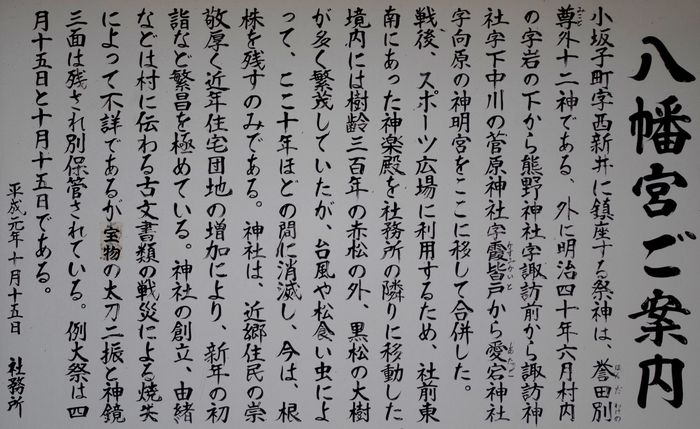 八幡宮ご案内
小坂子町字西新井に鎮座する祭神は、誉田別
尊外十二神である、外に明治四十年六月村内
の字岩の下から熊野神社字諏訪前から諏訪神
社字下中川の菅原神社字霞皆戸から愛宕神社
字向原の神明宮をここに移して合併した。
戦後、スポーツ広場に利用するため、社前東
南にあった神楽殿を社務所の隣りに移動した
境内には樹齢三百年の赤松の外、黒松の大樹
が多く繁茂していたが、台風や松食い虫によ
って、ここ十年ほどの間に消滅し、今は、根
株を残すのみである。神社は、近郷住民の崇
敬厚く近年住宅団地の増加により、新年の初
詣など繁昌を極めている。神社の創立、由緒
などは村に伝わる古文書類の戦災による焼失
によって不詳であるが宝物の太刀二振と神鏡
三面は残され別保管されている。例大祭は四
月十五日と十月十五日である。
平成元年十月十五日 社務所